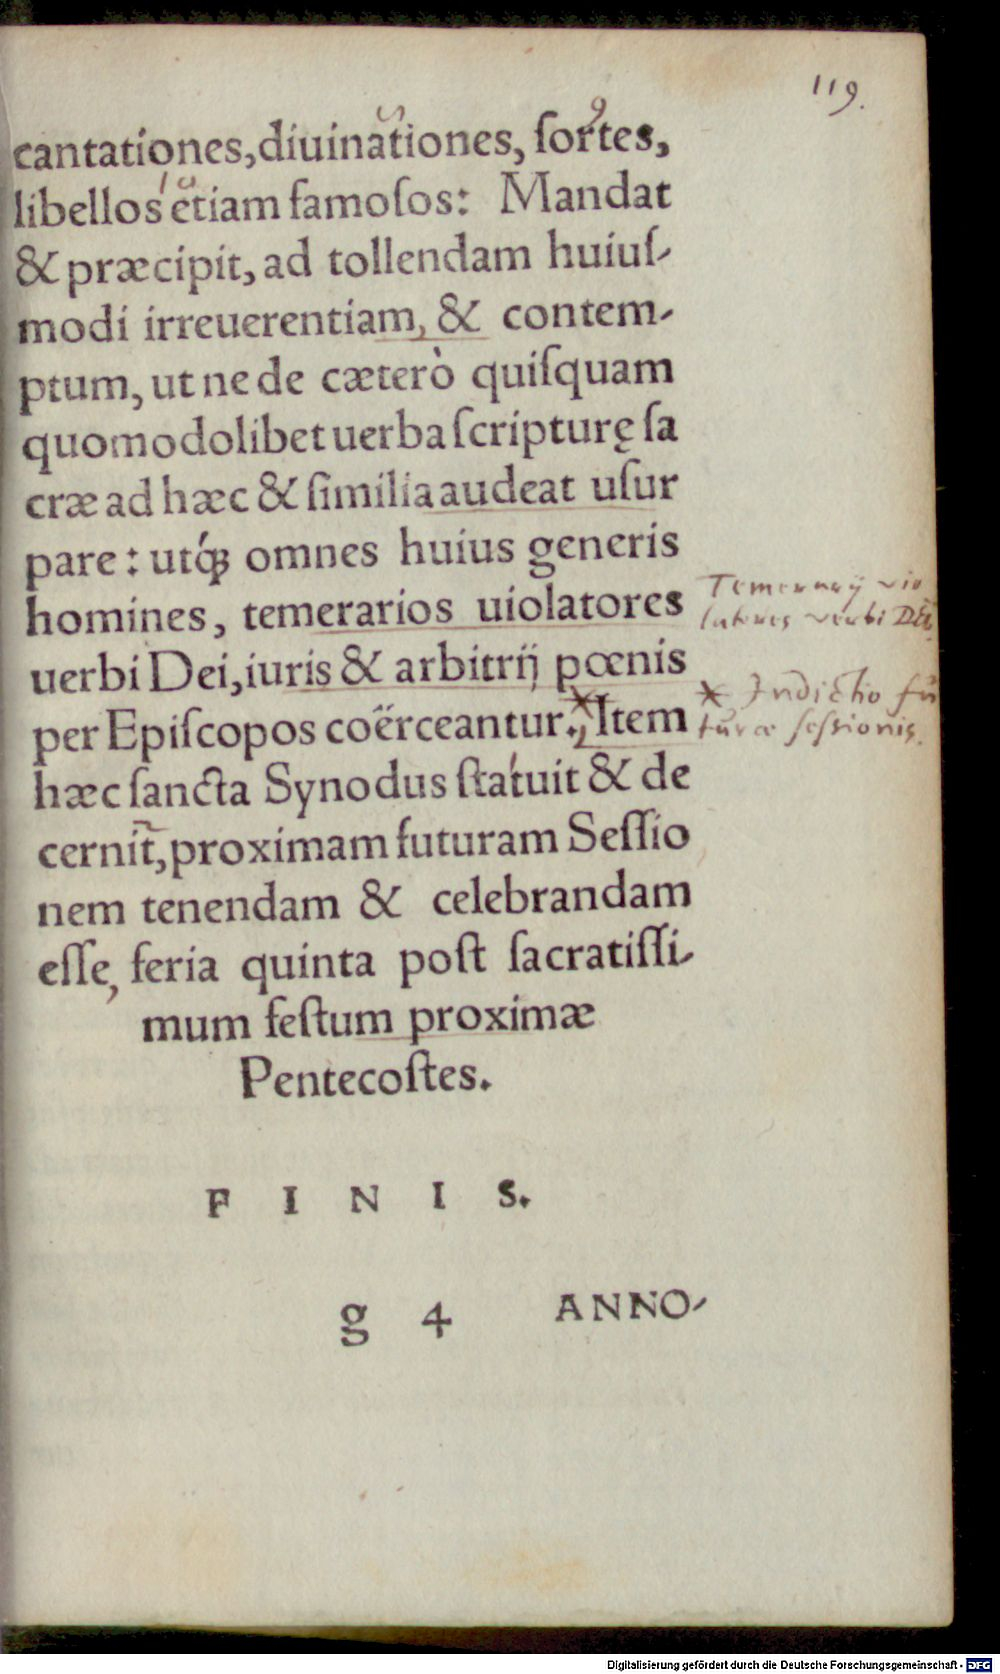 119.
cantationes, diuinationes, ſortes,
libellos etiam famoſos: Mandat
& præcipit, ad tollendam huiuſ-
modi irreuerentiam, & contem-
ptum, ut ne de cæterò quiſquam
quomodolibet uerba ſcripturę ſa
cræ ad hæc & ſimilia audeat uſur
pare: utq́; omnes huius generis
homines, temerarios uiolatores
uerbi Dei, iuris & arbitrij pœnis
per Epiſcopos coërceantur. * Item
hæc ſancta Synodus ſtatuit & de
cernit, proximam futuram Seſſio
nem tenendam & celebrandam
eſſe, feria quinta poſt ſacratiſſi-
mum feſtum proximæ
Pentecoſtes.
Temerarij vio
latores verbi DEI.
* Indictio fu
turæ ſeſsionis.
F I N I S.
g 4 ANNO-
Digitalisierung gefördert durch die Deutsche Forschungsgemeinschaft - DFG